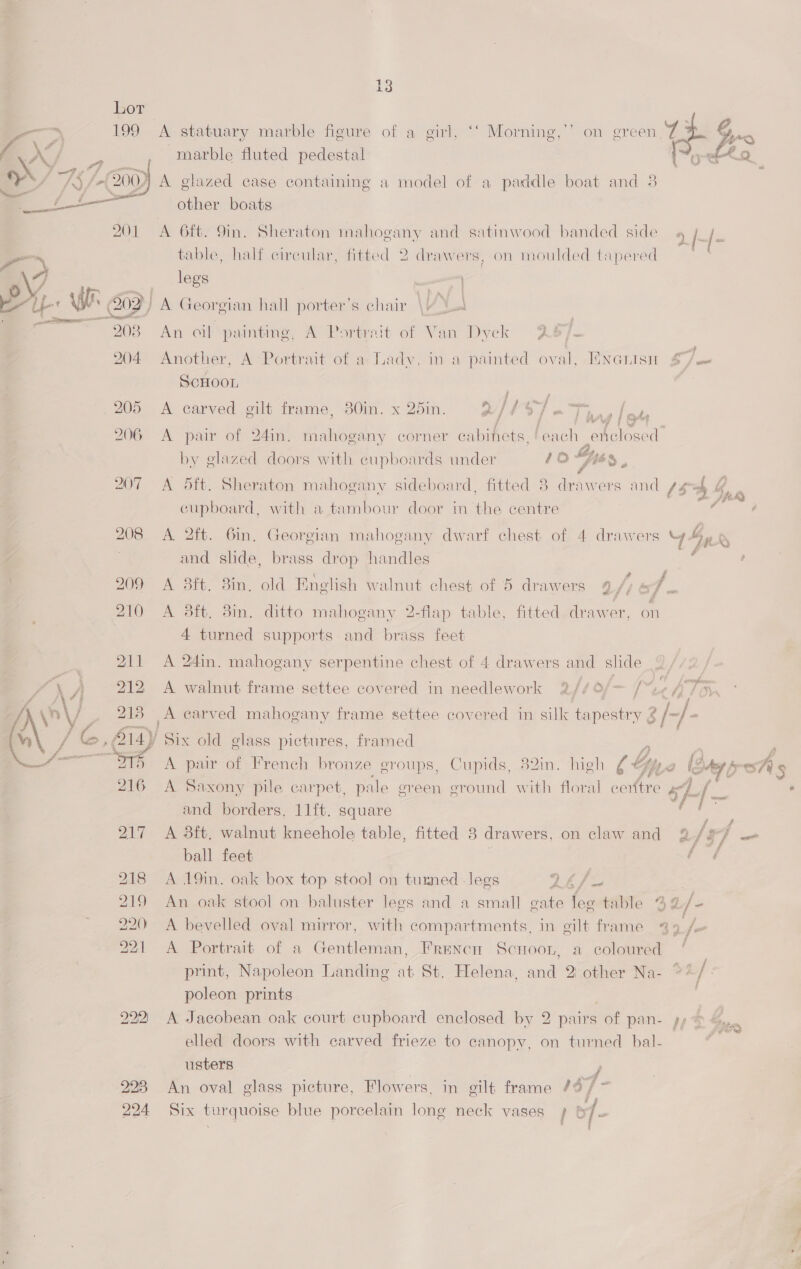 13
Lot
199 A statuary marble figure of a girl, ‘‘ Morning,’’ on green
marble fluted pedestal
200 A glazed case containing a model of a paddle boat and 3
other boats
201 A 6ft. 9in. Sheraton mahogany and satinwood banded side
table, half circular, fitted 2 drawers, on moulded tapered
legs
202 A Georgian hall porter's chair
203 An oil painting, A Portrait of Van Dyck 26/-
204 Another, A Portrait of a Lady, in a painted oval, English
School
205 A carved gilt frame, 30in. x 25in.
206 A pair of 24in. mahogany corner cabinets, each enclosed
by glazed doors with cupboards under 10 Gns
207 A 5ft. Sheraton mahogany sideboard, fitted 3 drawers and
cupboard, with a tambour door in the centre
208 A 2ft. 6in. Georgian mahogany dwarf chest of 4 drawers
and slide, brass drop handles
209 A 3ft. 3in. old English walnut chest of 5 drawers
210 A 3ft. 3in. ditto mahogany 2-flap table, fitted drawer, on
4 turned supports and brass feet
211 A 24in. mahogany serpentine chest of 4 drawers and slide
212 A walnut frame settee covered in needlework 2/10/-
213 A carved mahogany frame settee covered in silk tapestry 3/-/-
214 Six old glass pictures, framed
215 A pair of French bronze groups, Cupids, 32in. high
216 A Saxony pile carpet, pale green ground with floral centre
and borders, 11ft. square
217 A 3ft. walnut kneehole table, fitted 3 drawers, on claw and
ball feet
218 A 19in. oak box top stool on turned legs 26/-
219 An oak stool on baluster legs and a small gate leg table 32/-
220 A bevelled oval mirror, with compartments, in gilt frame
221 A Portrait of a Gentleman, French School, a coloured
print, Napoleon Landing at St. Helena, and 2 other Na-
poleon prints
222 A Jacobean oak court cupboard enclosed by 2 pairs of pan-
elled doors with carved frieze to canopy, on turned bal-
usters
223 An oval glass picture, Flowers, in gilt frame
224 Six turquoise blue porcelain long neck vases